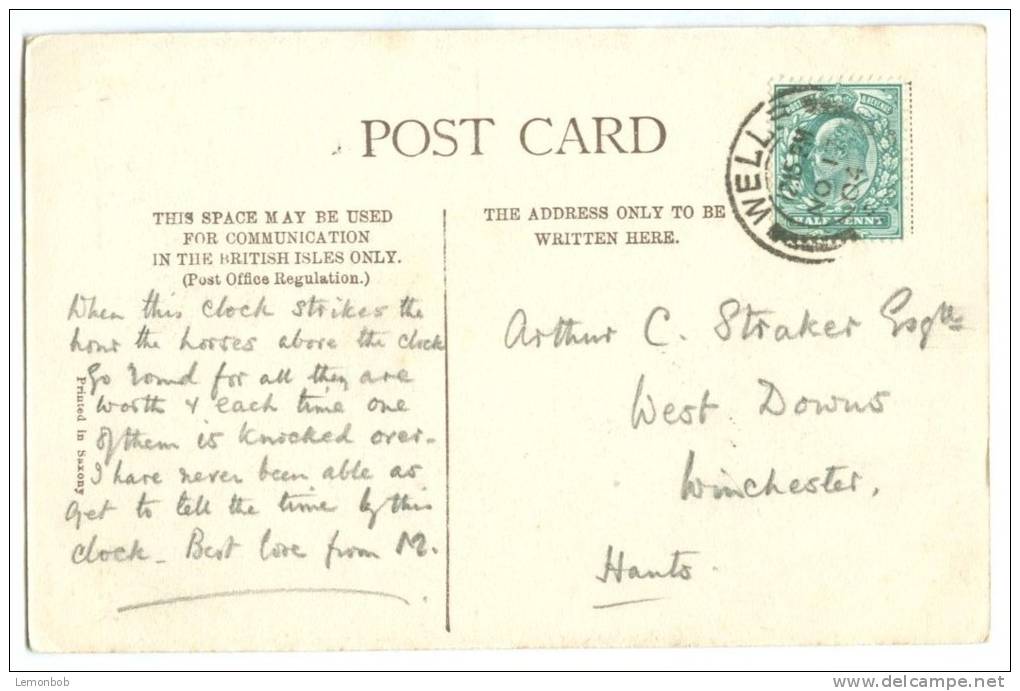 POST CARD
THIS SPACE MAY BE USED
FOR COMMUNICATION
IN THE BRITISH ISLES ONLY.
(Post Office Regulation.)
THE ADDRESS ONLY TO BE
WRITTEN HERE.
WELL
12.15 PM
NO 17
04
HALFPENNY
When this clock strikes the
hour the horses above the clock
Go round for all they are
worth & each time one
of them is knocked over.
I have never been able as
yet to tell the time by this
clock. Best love from M.
Printed in Saxony
Arthur C. Straker Esq
West Downs
Winchester,
Hants.
Lemonbob
www.delcampe.net